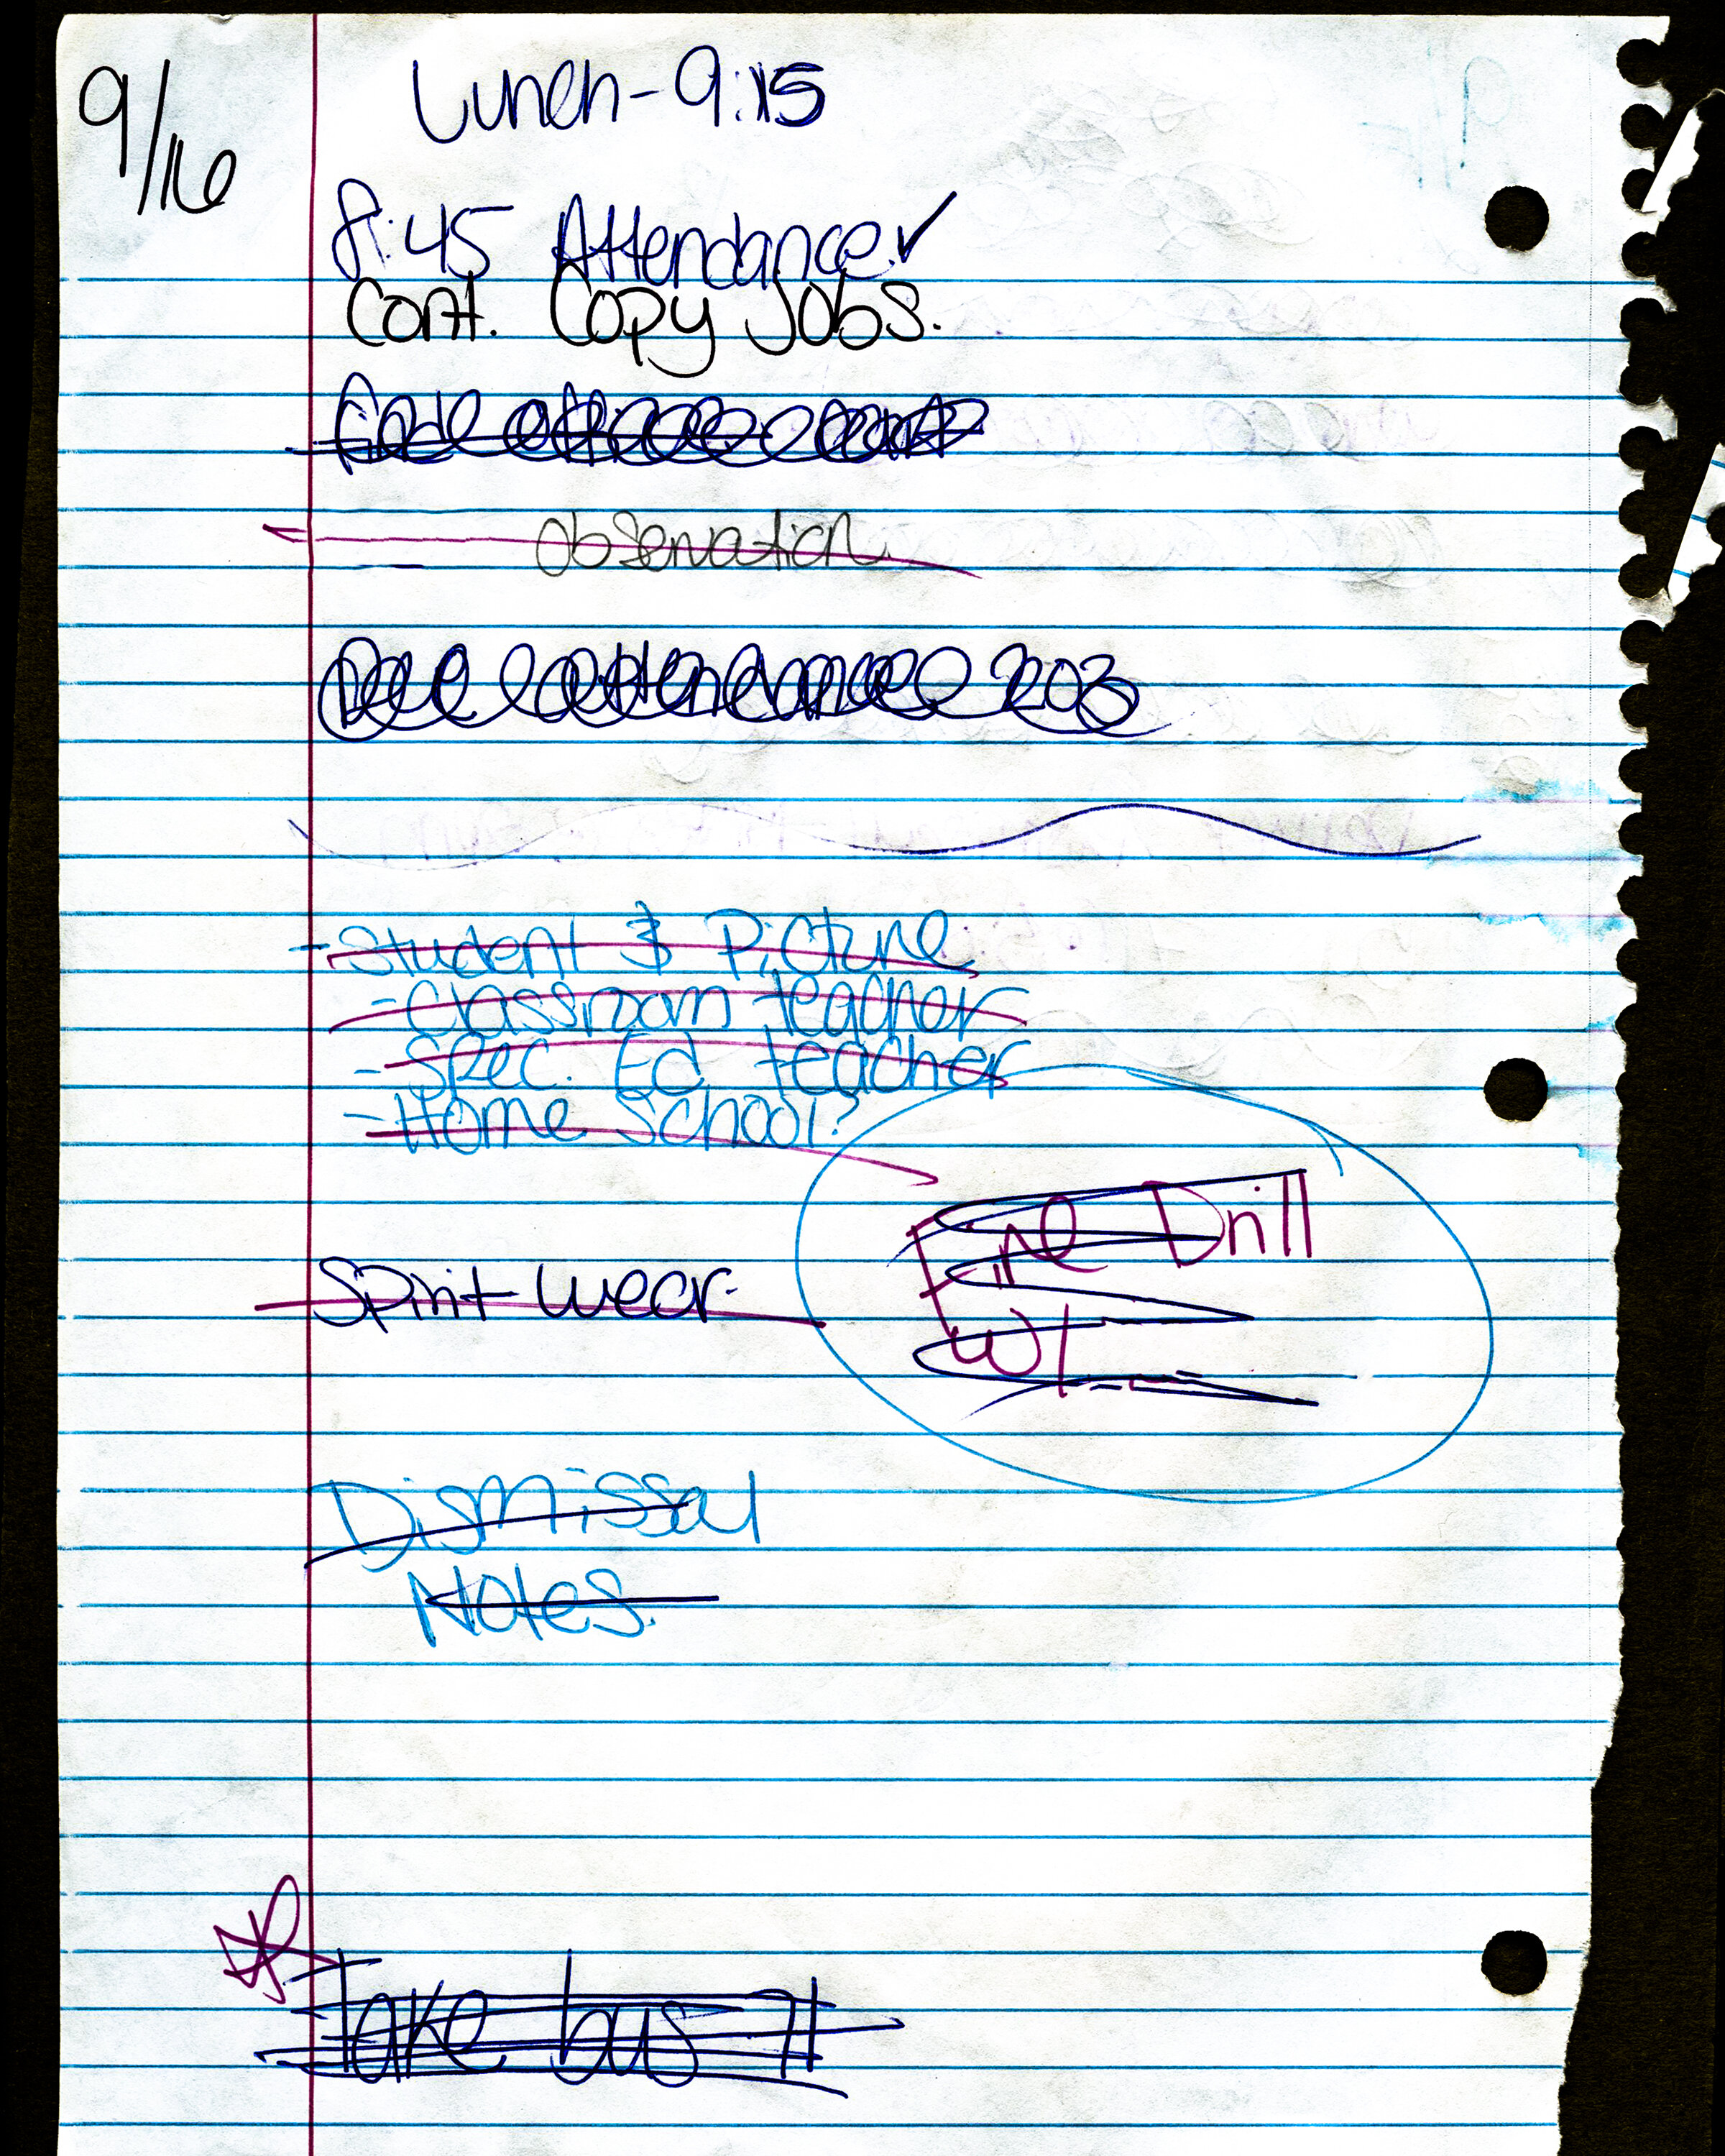 9/16
Lunch - 9:15
8:45 Attendance ✓
Cont. Copy Jobs.
observation
attendance 203
- Student $ Picture
- Classroom teacher
- Spec. Ed teacher
- Home School?
Fire Drill
Spirit wear.
Dismissal
Notes.
take bus 71